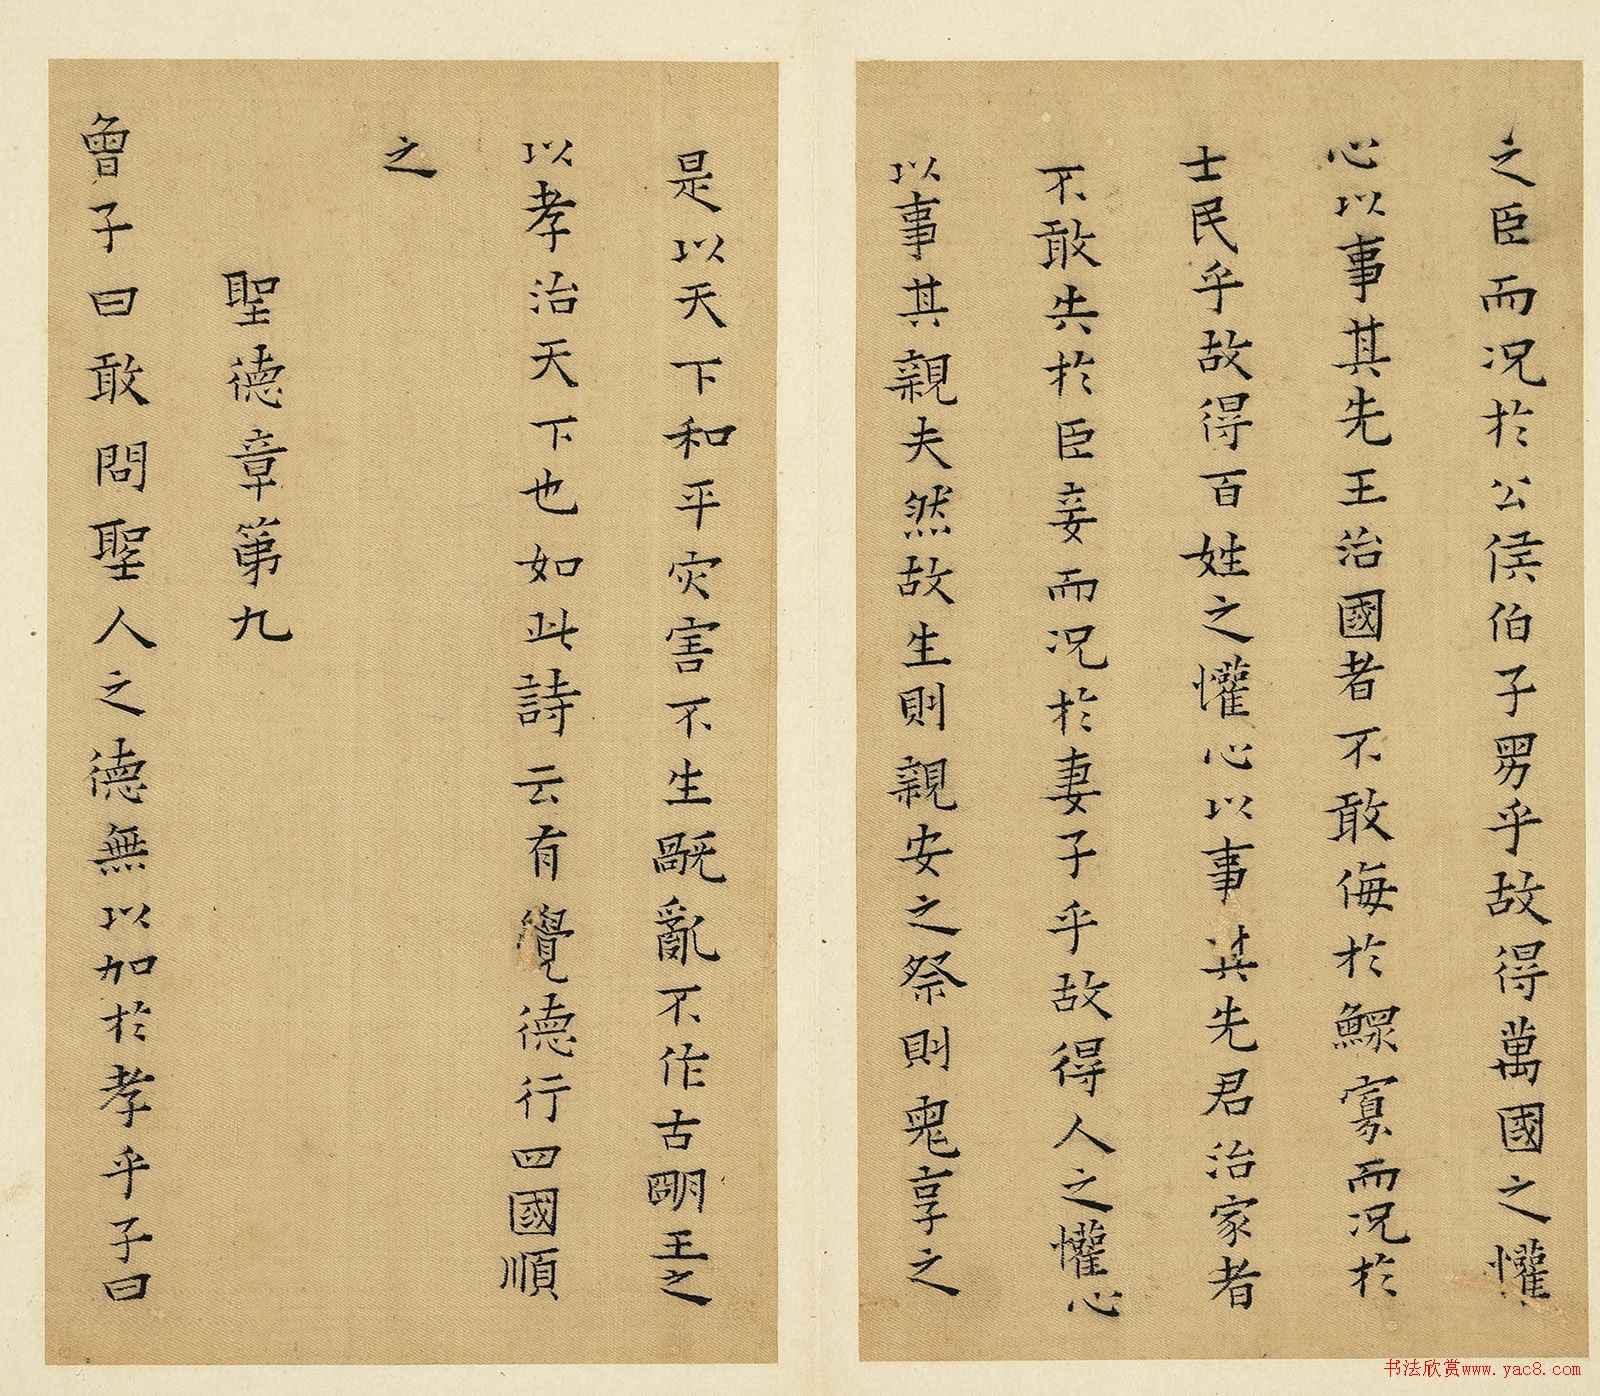 之臣而况於公侯伯子男乎故得萬國之懽
心以事其先王治國者不敢侮於鰥寡而况於
士民乎故得百姓之懽心以事其先君治家者
不敢失於臣妾而况於妻子乎故得人之懽心
以事其親夫然故生則親安之祭則鬼享之
是以天下和平灾害不生禍亂不作古明王之
以孝治天下也如此詩云有覺德行四國順
之
聖德章第九
曾子曰敢問聖人之德無以加於孝乎子曰
书法欣赏www.yac8.com